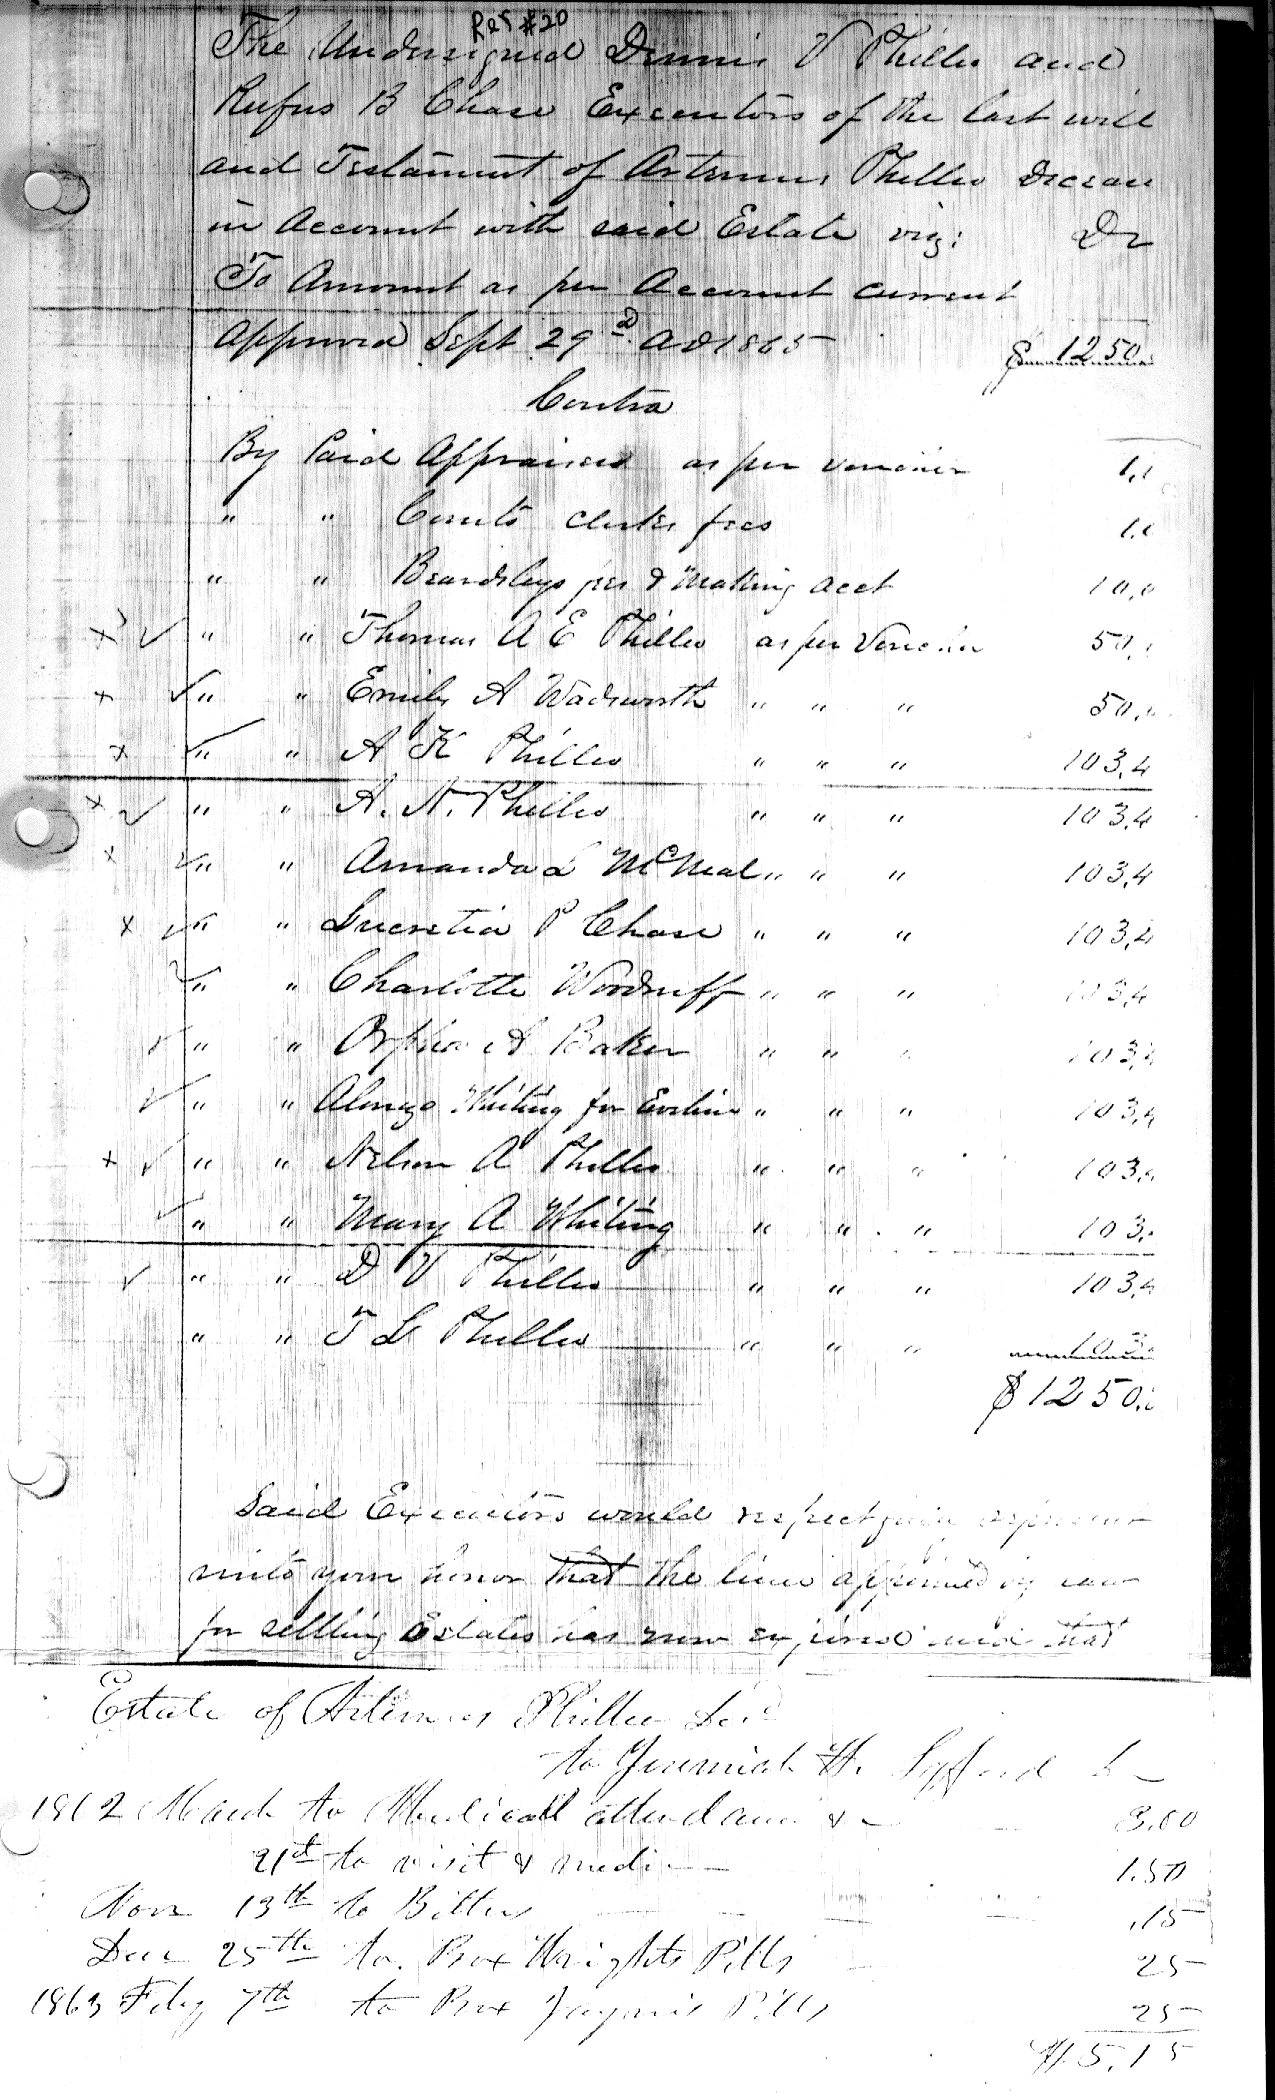 Ref #20
The Undersigned Dennis V Philleo and
Rufus B Chase Executors of the last will
and Testament of Artemus Philleo Deceas
in Account with said Estate viz: Dr
To Amount as per Account current
approved Sept 29 AD 1865 $1250.
Contra
By Paid Appraisers as per voucher 1,
" " Courts clerks fees 1.
" " Beardsleys fees & making acct 10,
x ✓ " " Thomas A E Philleo as per Voucher 50,
x ✓ " " Emily A Wadsworth " " " 50,
x ✓ " " A K Philleo " " " 103,4
x ✓ " " A. N. Philleo " " " 103,4
x ✓ " " Amanda L McNeal " " " 103,4
x ✓ " " Lucretia P Chase " " " 103,4
✓ " " Charlotte Woodruff " " " 103,4
✓ " " Orpha A Baker " " " 103,4
✓ " " Alonzo Whiting for Eveline " " " 103,4
x ✓ " " Nelson A Philleo " " " 103,
✓ " " Mary A Whiting " " " 103,
✓ " " D V Philleo " " " 103,4
" " T L Philleo " " " 103
$1250.
Said Executors would respectfully represent
unto your honor that the time appointed by law
for settling Estates has now expired and that
Estate of Artemus Philleo Decd
to Jeremiah H.
1862 March to Medicall attendance & 3.00
21st to visit & medi 1.50
Nov 13th to Bitters .15
Dec 25th to Box Wrights Pills 25
1863 Feby 7th to Box Jaynes Pills 25
$5.15